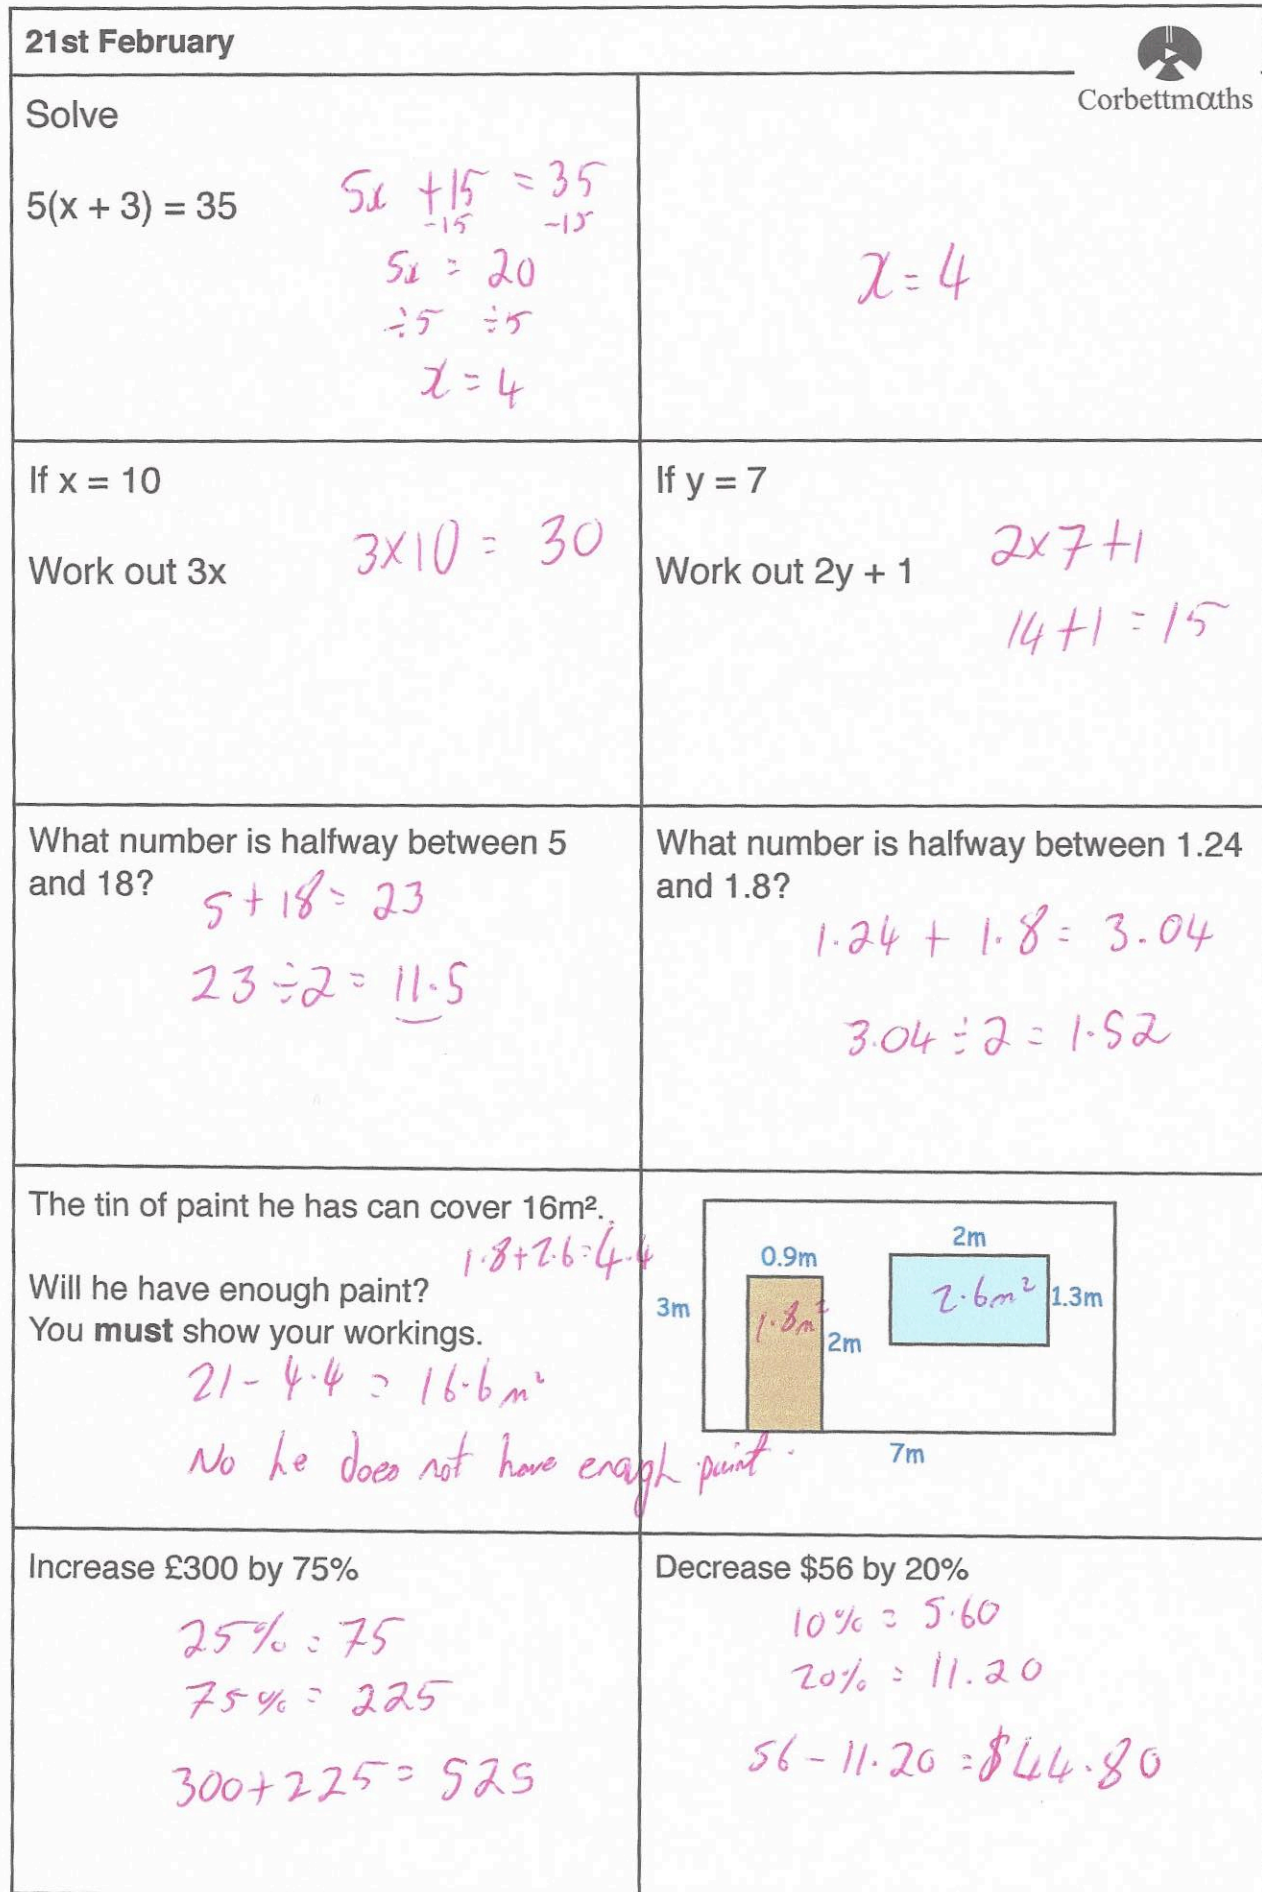 21st February
Corbettmαths
Solve
5(x + 3) = 35
5x + 15 = 35
-15 -15
5x = 20
÷5 ÷5
x = 4
x = 4
If x = 10
Work out 3x
3×10 = 30
If y = 7
Work out 2y + 1
2×7+1
14+1 = 15
What number is halfway between 5
and 18?
5 + 18 = 23
23 ÷ 2 = 11.5
What number is halfway between 1.24
and 1.8?
1.24 + 1.8 = 3.04
3.04 ÷ 2 = 1.52
The tin of paint he has can cover 16m².
1.8+2.6=4.4
Will he have enough paint?
You must show your workings.
21 - 4.4 = 16.6 m²
No he does not have enough paint.
2m
0.9m
3m
1.8m²
2m
2.6m²
1.3m
7m
Increase £300 by 75%
25% = 75
75% = 225
300+225 = 525
Decrease $56 by 20%
10% = 5.60
20% = 11.20
56 - 11.20 = $44.80